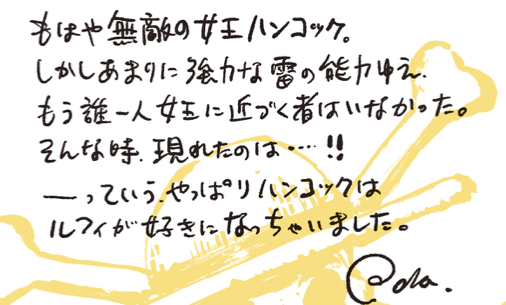 もはや無敵の女王ハンコック。
しかしあまりに強力な雷の能力ゆえ、
もう誰一人女王に近づく者はいなかった。
そんな時、現れたのは…‥!!
―っていう、やっぱりハンコックは
ルフィが好きになっちゃいました。
@oda.